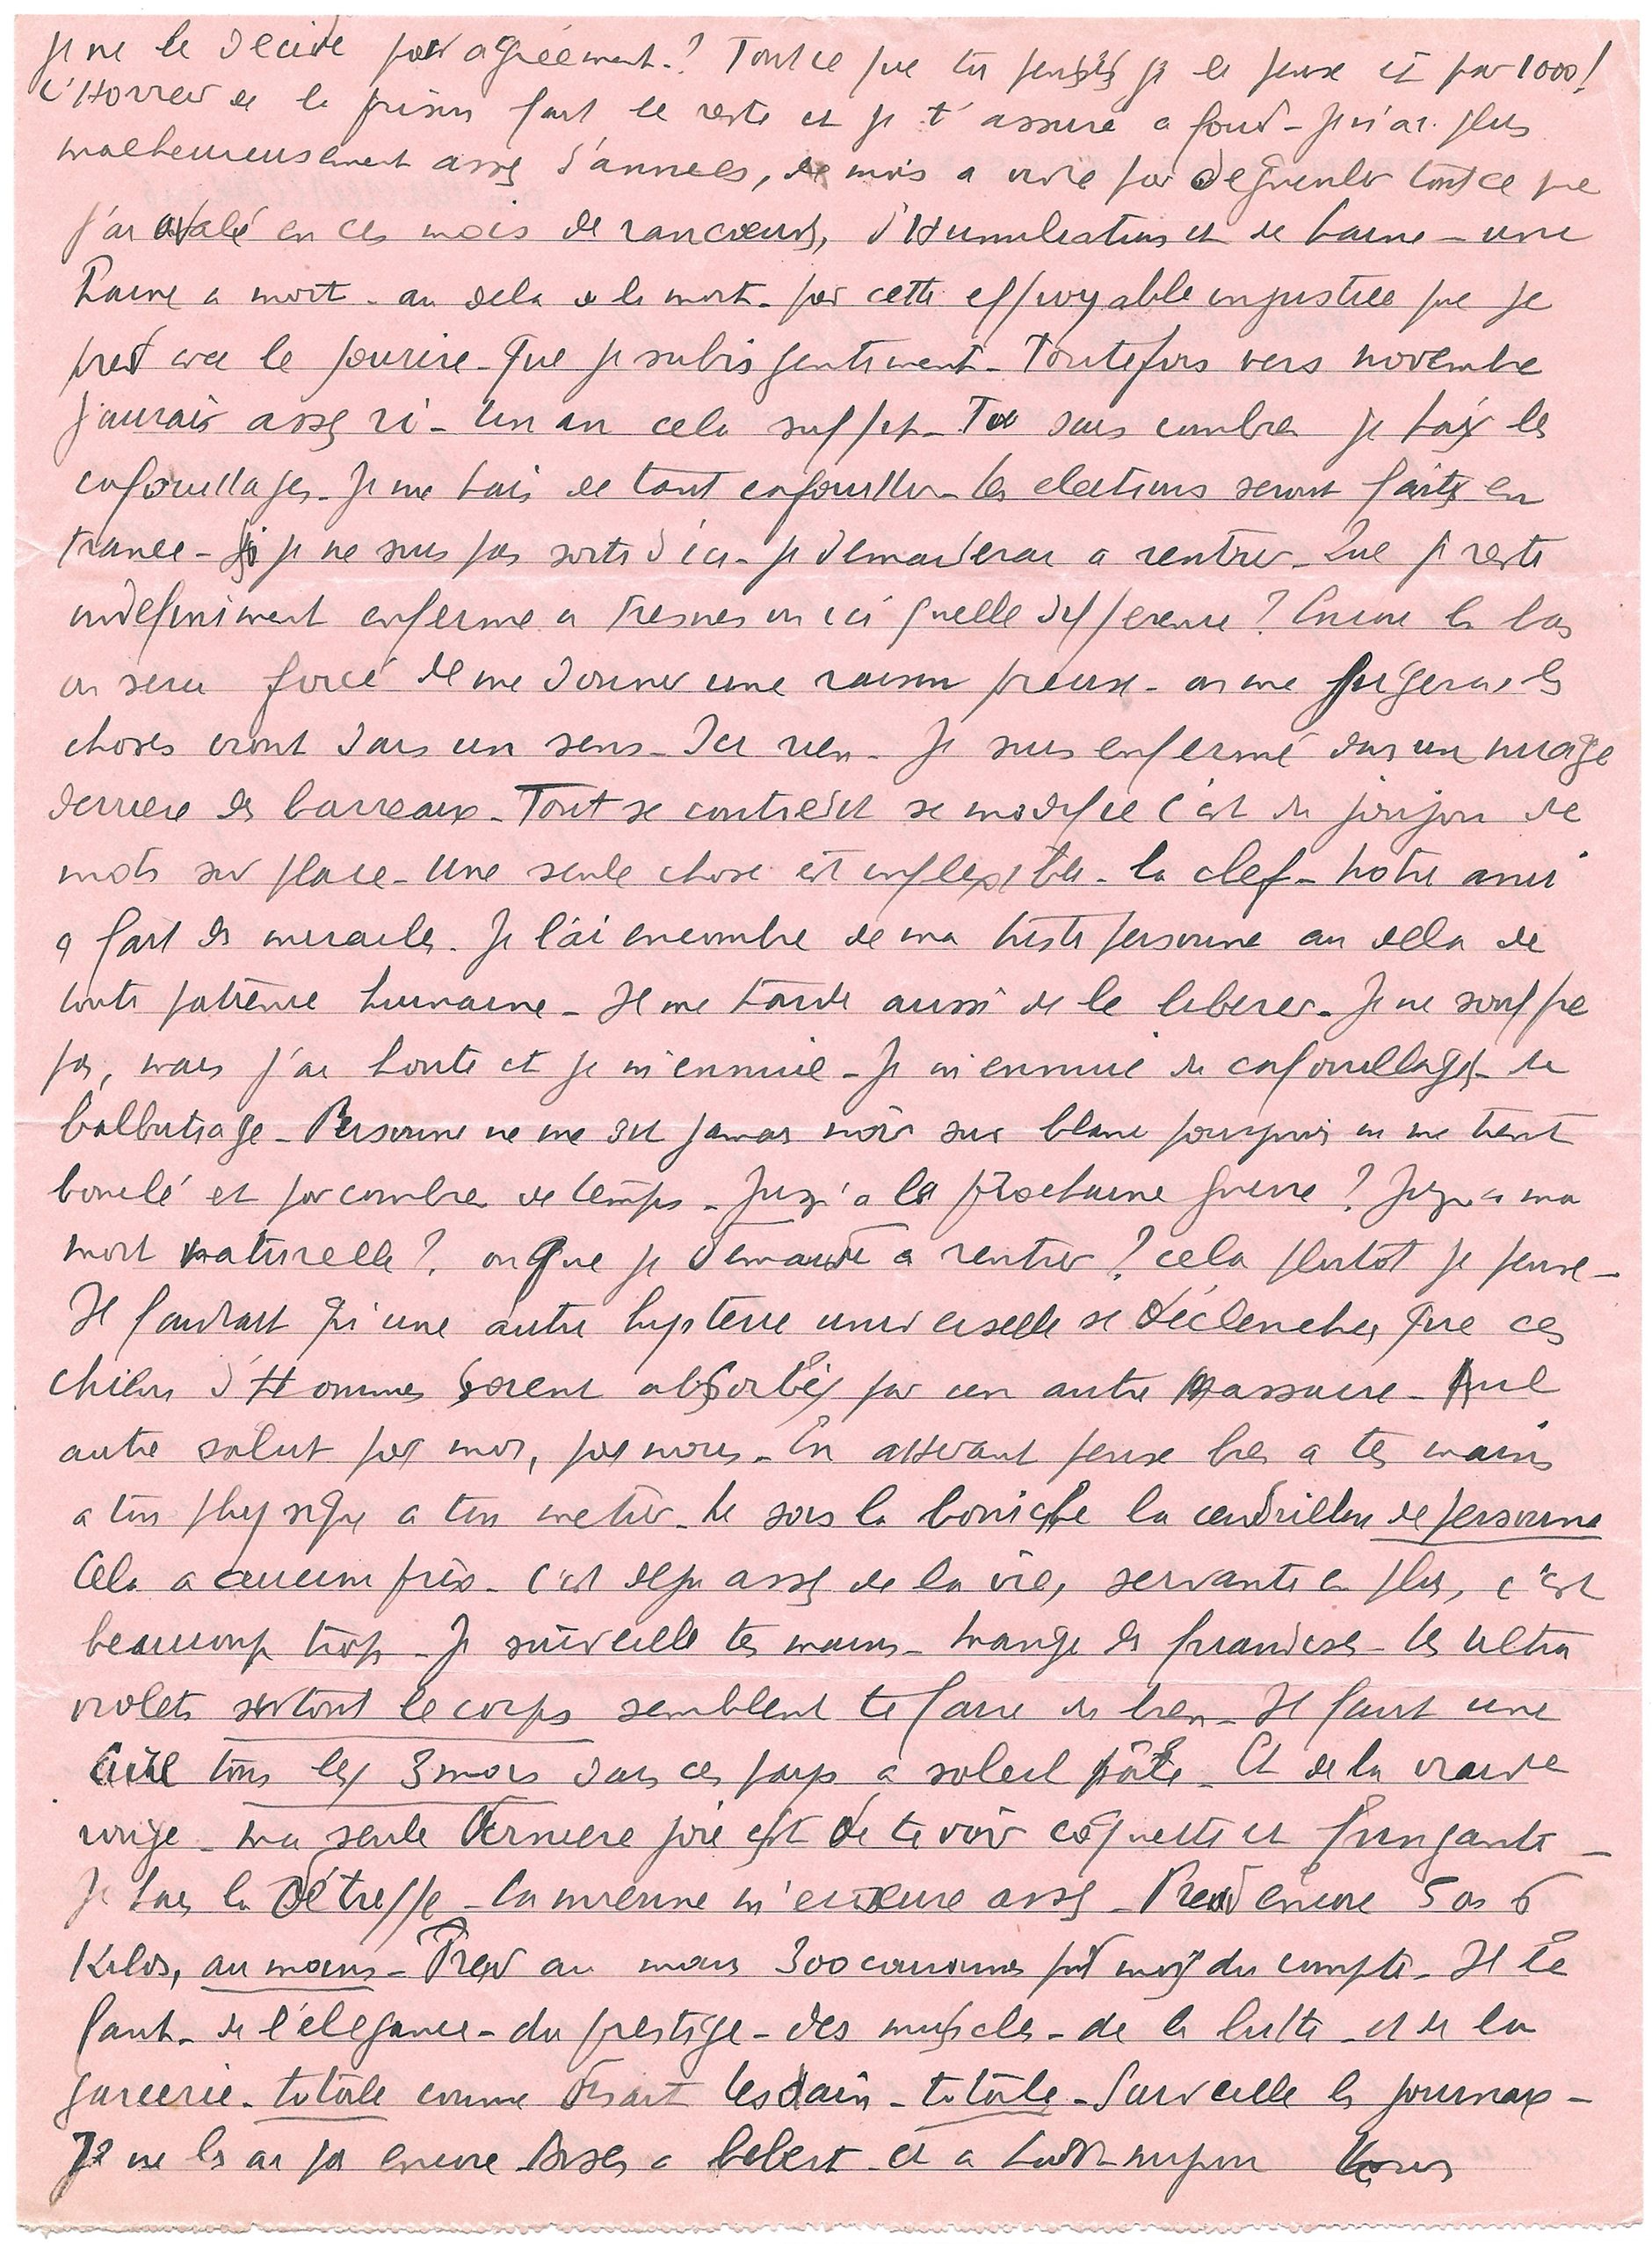 je ne le decide par agréement ? Tout ce que tu penses je le pense et par 1000 !
L'Horreur de la prison fait le reste et je t'assure a fond - Je n'ai plus
malheureusement assez d'années, de mois a vivre pour degueuler tout ce que
j'ai avalé en ces mois de rancoeurs, d'Humiliations et de haine - une
Haine a mort - au dela de la mort - par cette effroyable injustice que je
prend avec le sourire - que je subis gentiment - Toutefois vers novembre
j'aurais assez ri - Un an cela suffit - Tu sais combien je hais les
cafouillages - Je me hais de tant cafouiller - les elections seront faites en
France - Si je ne suis pas sorti d'ici - je demanderai a rentrer - Que je reste
indefiniment enfermé a Fresnes ou ici quelle difference ? Encore la bas
on sera forcé de me donner une raison precise - on me jugera, les
choses iront dans un sens - Ici rien - Je suis enfermé dans un nuage
derriere des barreaux - Tout se contredit se modifie c'est du joujou de
mots sur place - Une seule chose est inflexible - la clef - Notre ami
a fait des miracles. Je l'ai encombré de ma triste personne au dela de
toute patience humaine - Il me tarde aussi de le liberer - Je ne souffre
pas, mais j'ai honte et je m'ennuie - Je m'ennuie du cafouillage - du
balbutiage - Personne ne me dit jamais noir sur blanc pourquoi on me tient
bouclé et pour combien de temps - Jusqu'a la prochaine guerre ? Jusqu'a ma
mort naturelle ? ou que je demande a rentrer ? cela plutot je pense -
Il faudrait qu'une autre hysterie universelle se déclenche, que ces
chiens d'Hommes soient absorbés par un autre massacre - Nul
autre salut pour moi, pour nous - En attendant pense bien a tes mains
a ton physique a ton metier - Ne sois la boniche la cendrillon de personne
Cela a aucun prix - C'est deja assez de la vie, servante en plus, c'est
beaucoup trop - Je surveille tes mains - Mange des friandises - les Ultra
violets surtout le corps semblent te faire du bien - Il faut une
cure tous les 3 mois dans ces pays a soleil pâle - Et de la viande
rouge - ma seule derniere joie est de te voir coquette et fringante -
Je hais la détresse - la mienne m'ecoeure assez - Prend encore 5 ou 6
Kilos, au moins - Prend au moins 300 couronnes par mois du compte - Il te
faut - de l'élegance - du prestige - des muscles - de la lutte - et de la
garcerie - totale comme disait - totale - Surveille les journaux -
Je ne les ai pas encore Bises a Bebert - et a